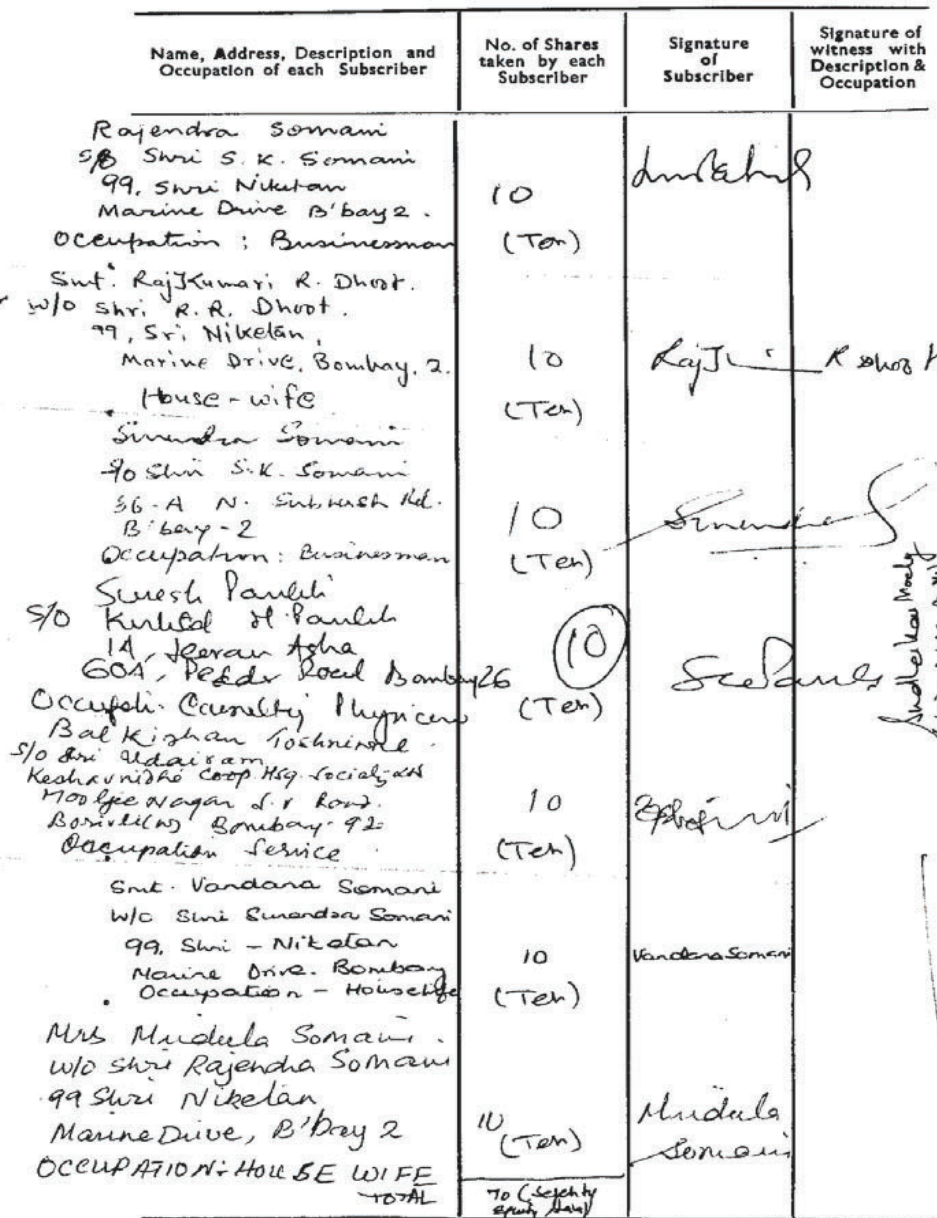 Name, Address, Description and
Occupation of each Subscriber
No. of Shares
taken by each
Subscriber
Signature
of
Subscriber
Signature of
witness with
Description &
Occupation
Rajendra Somani
S/o Shri S. K. Somani
99, Shri Niketan
Marine Drive B'bay 2.
Occupation : Businessman
10
(Ten)
Smt. RajKumari R. Dhoot.
w/o Shri R. R. Dhoot.
99, Sri Niketan,
Marine Drive, Bombay, 2.
House-wife
10
(Ten)
R Dhoot
Surendra Somani
S/o Shri S.K. Somani
36-A N. Subhash Rd.
B'bay-2
Occupation: Businessman
10
(Ten)
Surendra
Suresh
S/O
14, Jeevan Asha
60A, Peddar Road Bombay 26
10
(Ten)
Bal Kishan Toshniwal
S/o Shri Udairam
Keshavnidhi Coop. Hsg. Society Ltd
Mooljee Nagar S.V. Road.
Borivli(W) Bombay-92
Occupation Service
10
(Ten)
Smt. Vandana Somani
W/o Shri Surendra Somani
99, Shri - Niketan
Marine Drive. Bombay
Occupation - Housewife
10
(Ten)
Vandana Somani
Mrs Mridula Somani.
w/o Shri Rajendra Somani
99 Shri Niketan
Marine Drive, B'bay 2
OCCUPATION: HOUSE WIFE
10
(Ten)
Mridula
Somani
TOTAL
70 (Seventy
Equity